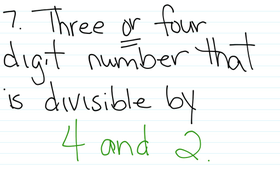 7. Three or four
digit number that
is divisible by
4 and 2.